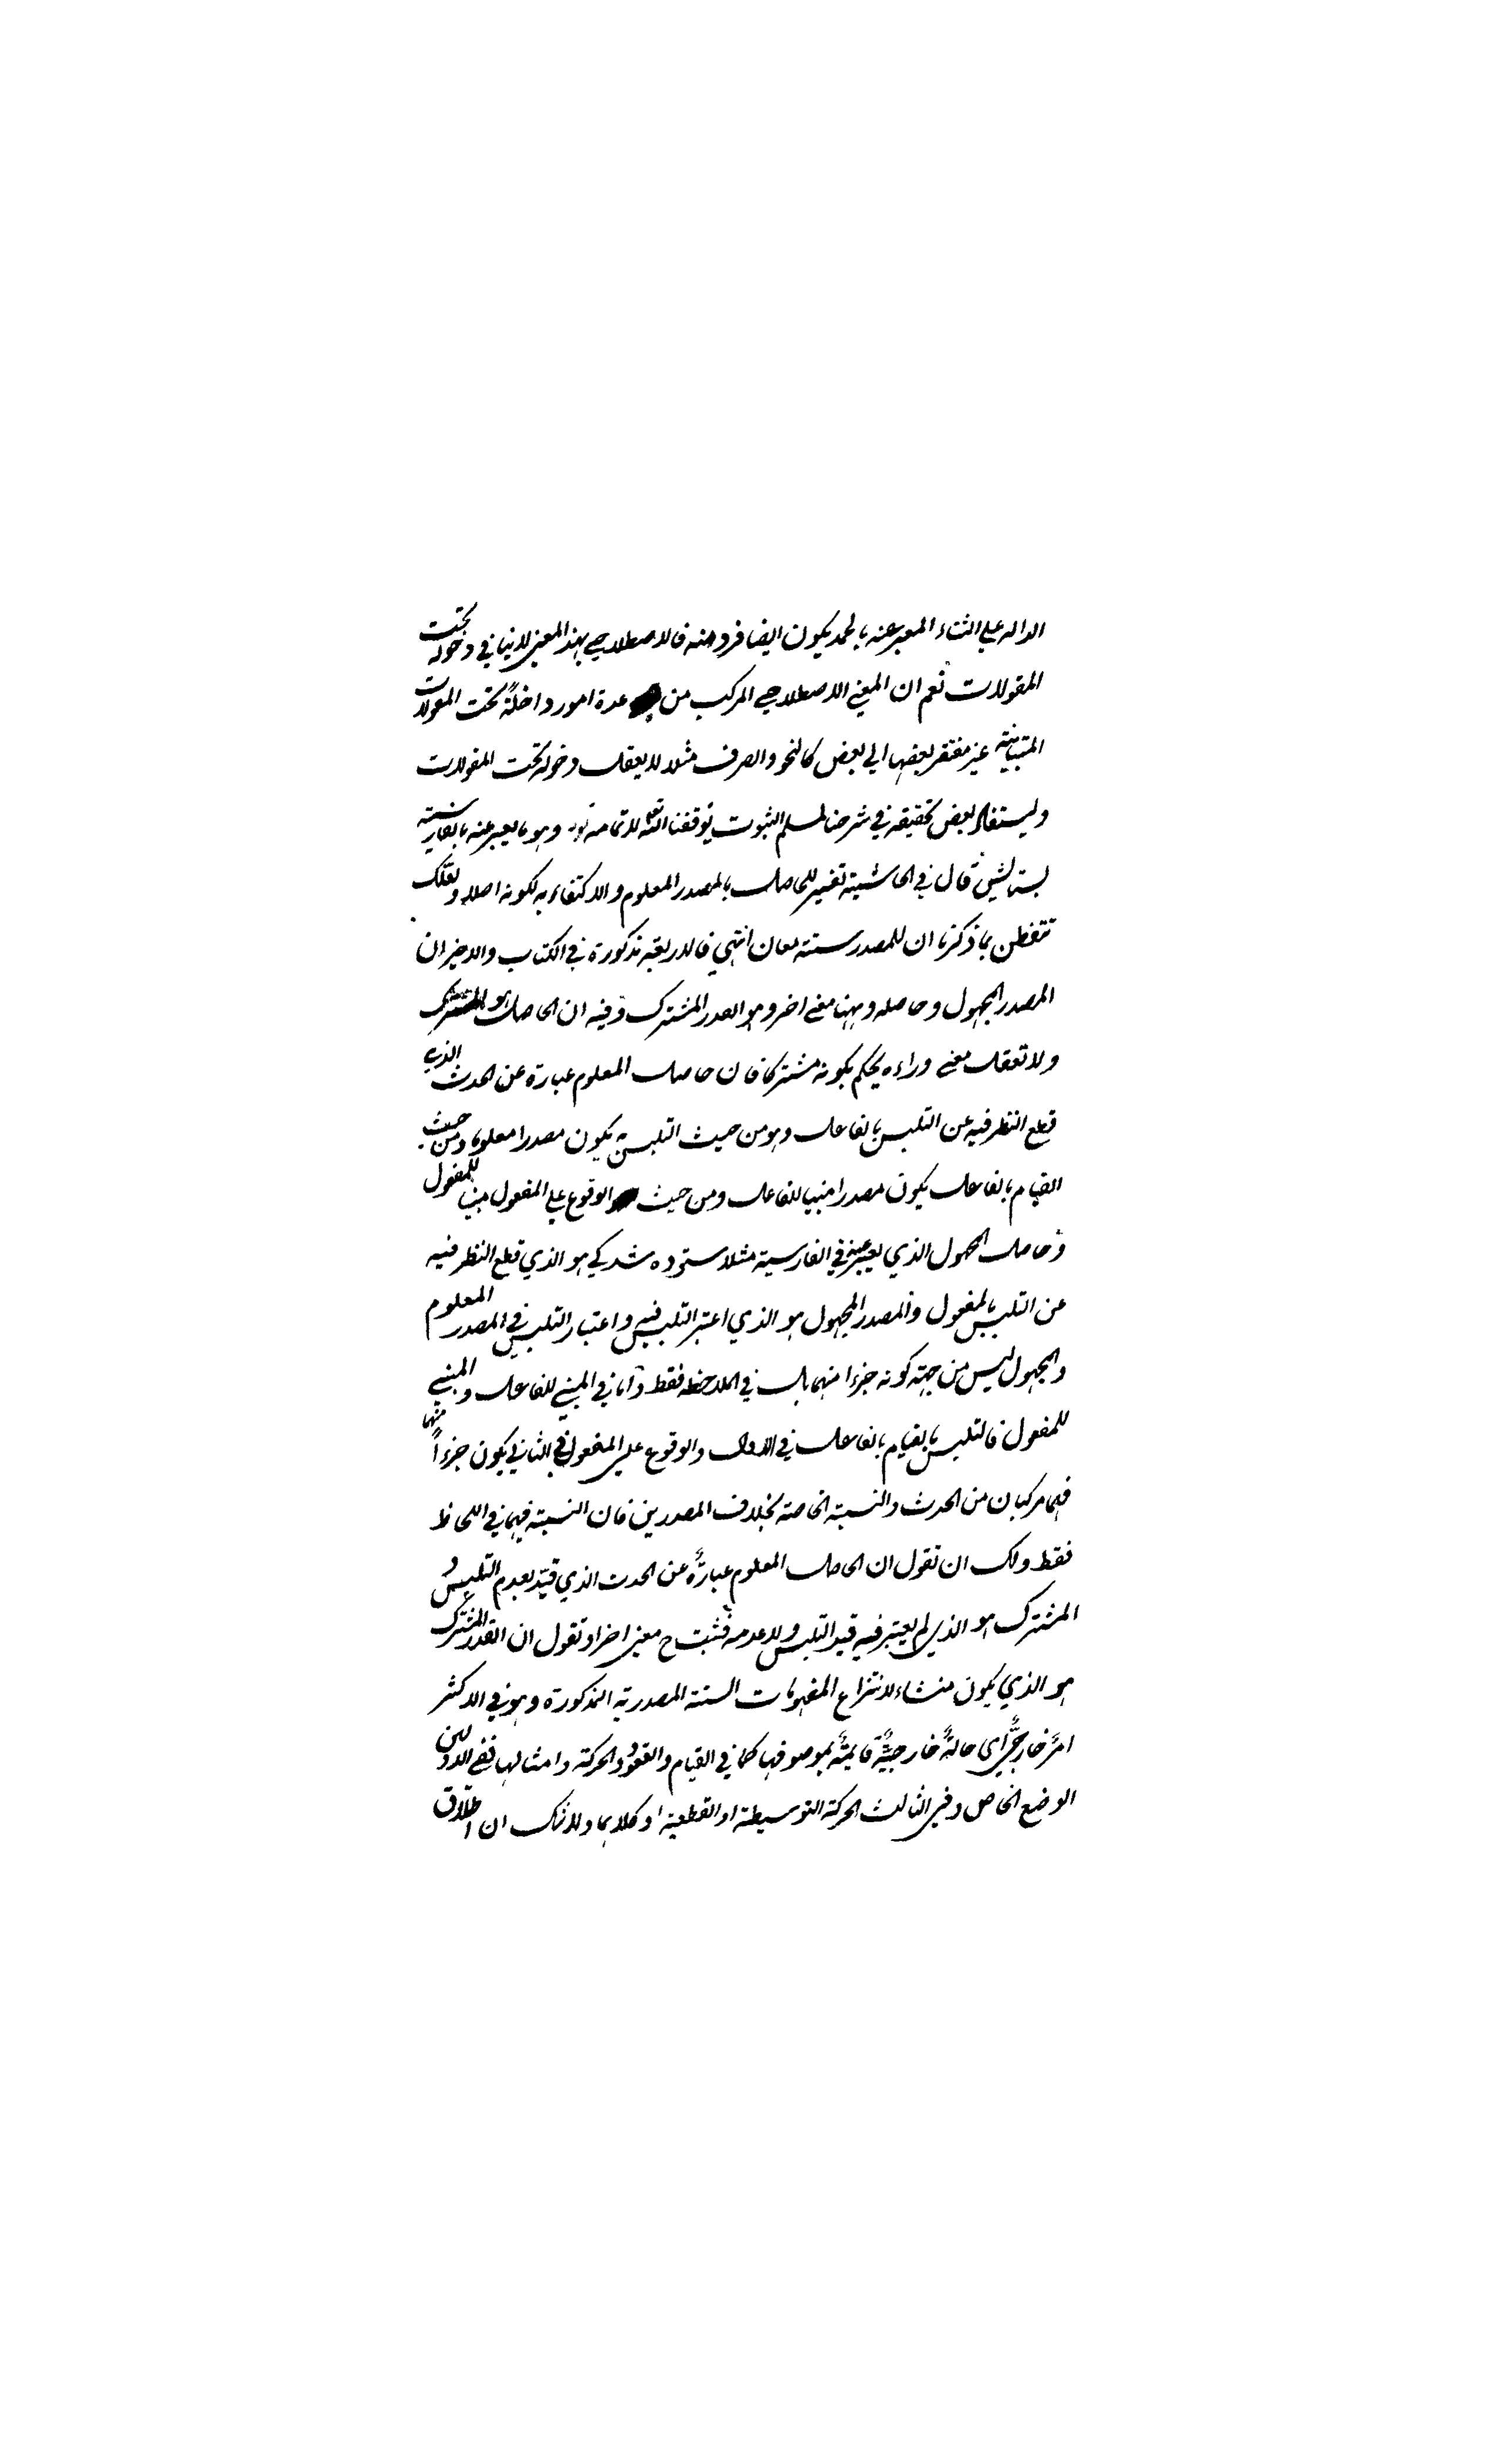 الداله علي الثناء المعبر عنه بالحمد يكون ايضا فردا منه فالاصطلاحي بهذا المعني لا ينافي دخوله تحت
المقولات نعم ان المعني الاصطلاحي المركب من عدة امور داخلةً تحت المقولات
المتباينة غير مفتقر بعضها الي بعض كالنحو والصرف مثلا لا يعقل دخوله تحت المقولات
وليستفاد بعض تحقيقه في شرحنا لمسلم الثبوت توفقنا الله تعالي لاتمامه وهو ما يعبر عنه بالفارسية
بستايش قال في الحاشية تفسير للحاصل بالمصدر المعلوم والاكتفاء به لكونه اصلا ولعلك
تتفطن بما ذكرنا ان للمصدر ستة معان انتهي فالاربعة مذكورة في الكتاب والاخيران
المصدر المجهول وحاصله وههنا معني اخر وهو القدر المشترك وفيه ان الحاصل هو المشترك
ولا تعقل معني وراءه يحكم بكونه مشتركا فان حاصل المعلوم عبارة عن الحدث الذي
قطع النظر فيه عن التلبس بالفاعل وهو من حيث التلبس به يكون مصدرا معلوما ومن حيث
القيام بالفاعل يكون مصدرا مبنيا للفاعل ومن حيث الوقوع علي المفعول مبنيا للمفعول
وحاصل المجهول الذي يعبر عنه في الفارسية مثلا ستوده شدگي هو الذي قطع النظر فيه
عن التلبس بالمفعول والمصدر المجهول هو الذي اعتبر التلبس فيه واعتبار التلبس في المصدر المعلوم
والمجهول ليس من جهة كونه جزءا منهما بل في الملاحظة فقط واما في المبني للفاعل والمبني
للمفعول فالتلبس بالقيام بالفاعل في الاول والوقوع علي المفعول في الثاني يكون جزءاً منهما
فهما مركبان من الحدث والنسبة الخاصة بخلاف المصدرين فان النسبة فيهما في اللحاظ
فقط ولك ان تقول ان الحاصل المعلوم عبارةٌ عن الحدث الذي قيّد بعدم التلبس و
المشترك هو الذي لم يعتبر فيه قيد التلبس ولا عدمه فثبت ح معني اخر او تقول ان القدر المشترك
هو الذي يكون منشاء لانتزاع المفهومات الستة المصدرية المذكورة وهو في الاكثر
امرٌ خارجيٌ اي حالةٌ خارجيةٌ قايمةٌ بموصوفها كما في القيام والقعود والحركة وامثالها ففي الاولين
الوضع الخاص وفي الثالث الحركة التوسطية او القطعية او كلاهما ولا شك ان اطلاق